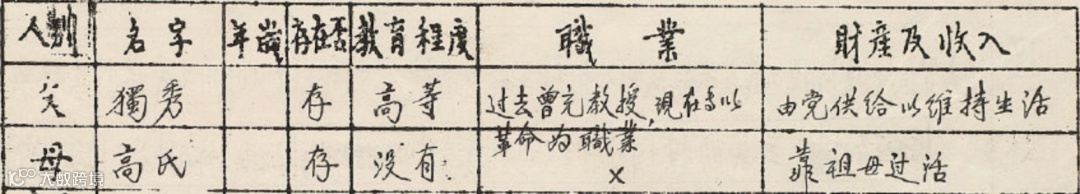 人别 名字 年歲 存在否 教育程度 職業 財産及收入
父 獨秀 存 高等 过去曾充教授,現在专以
革命为職業 由党供给以維持生活
母 高氏 存 没有 × 靠祖母过活
大数跨境